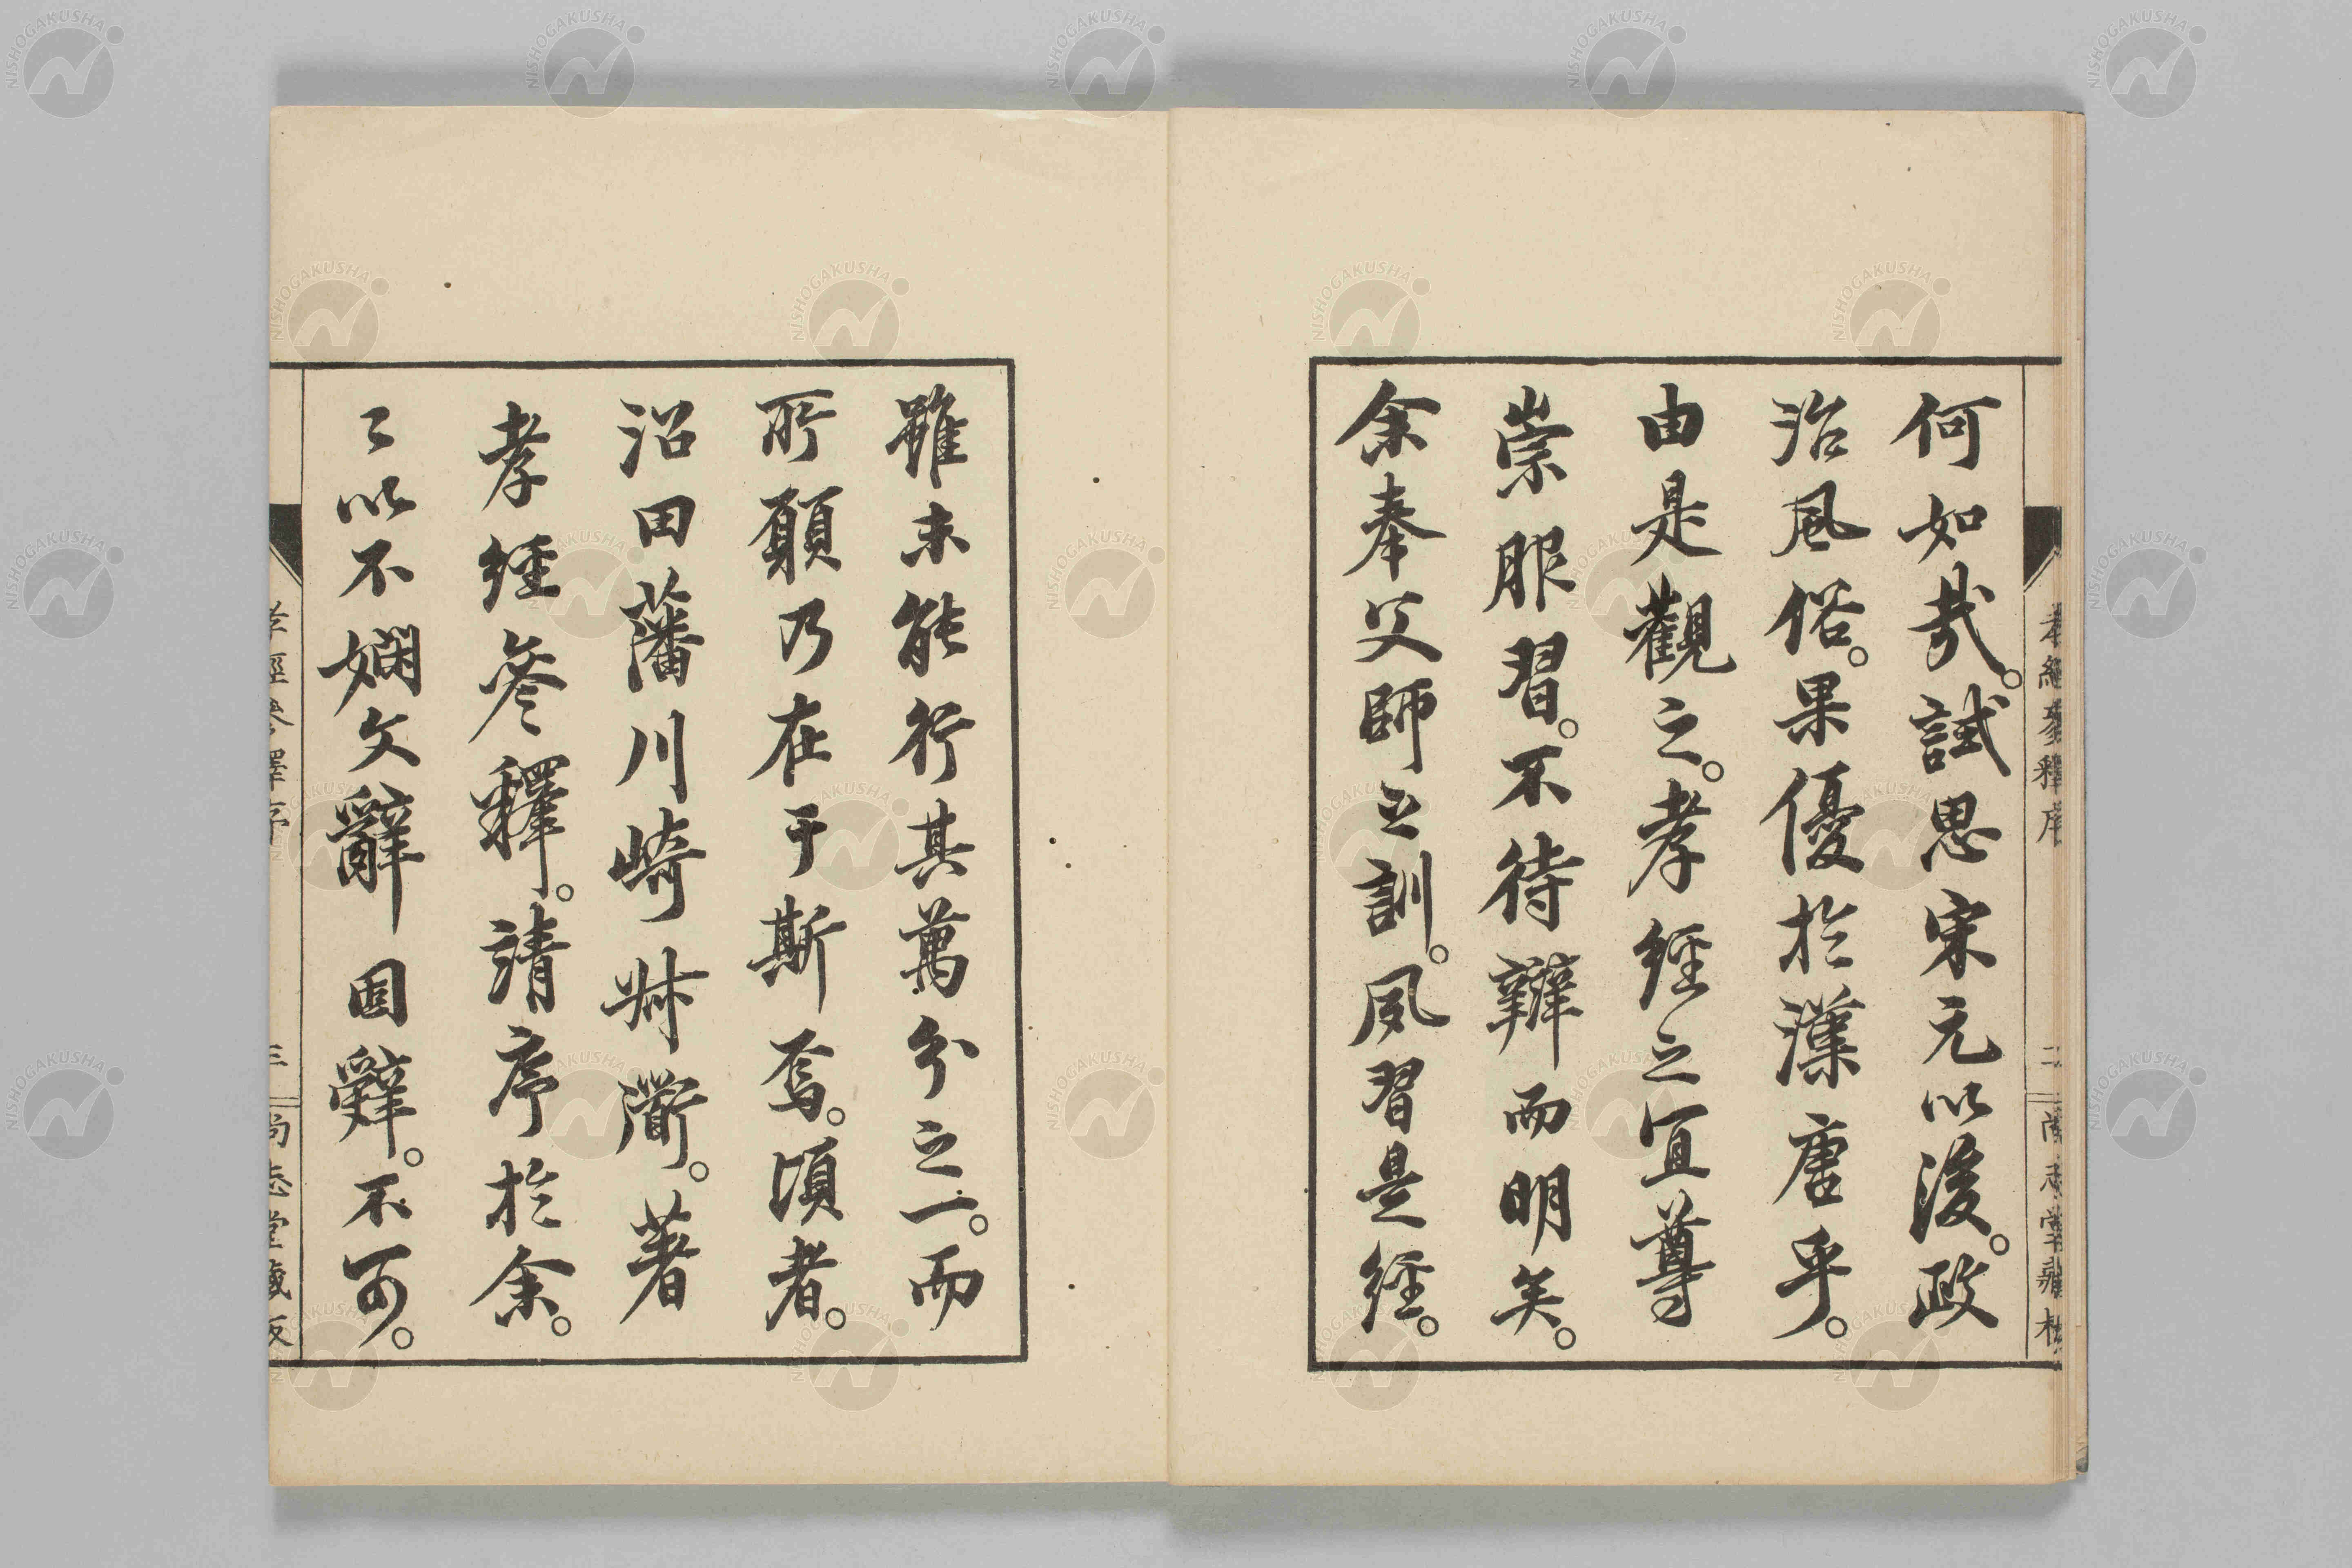 何如哉。試思宋元以後。政
治風俗。果優於漢唐乎。
由是觀之。孝經之宜尊
崇服習。不待辯而明矣。
余奉父師之訓。夙習是經。
孝經參釋序
二
尚志堂藏板
雖未能行其萬分之一。而
所願乃在于斯焉。頃者。
沼田藩川崎叔衛。著
孝經參釋。請序於余。
々以不嫻文辭固辭。不可。
孝經參釋序
三
尚志堂藏板
NISHOGAKUSHA